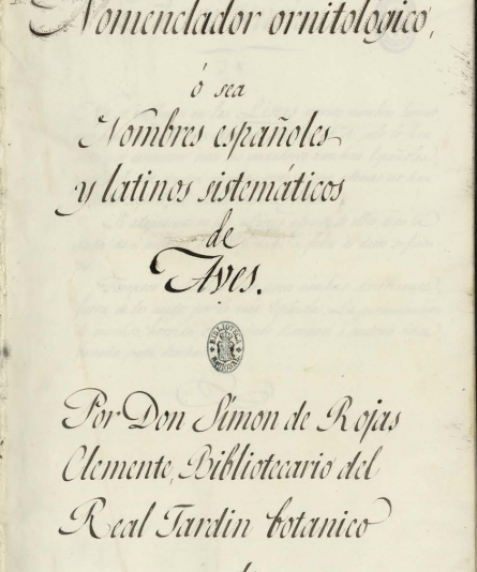 Nomenclador ornitologico,
ó sea
Nombres españoles
y latinos sistemáticos
de
Aves.
BIBLIOTECA NACIONAL
Por Don Simon de Rojas
Clemente, Bibliotecario del
Real Jardin botanico